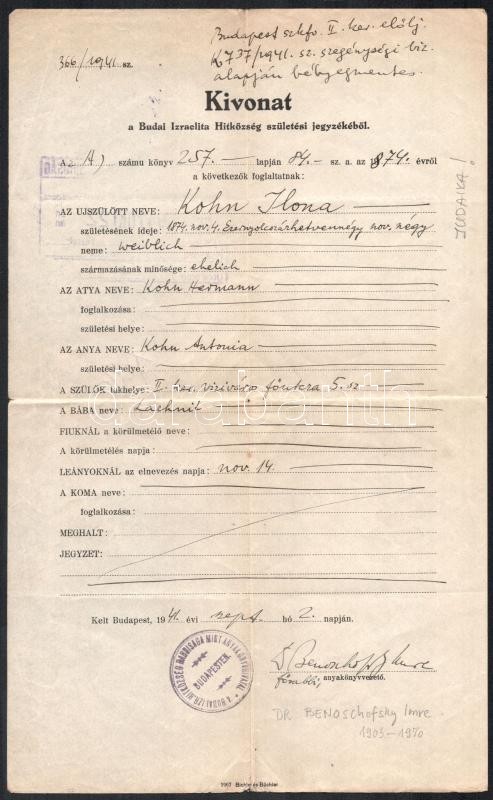 Budapest szkfv. II. ker. elölj.
K 737/1941. sz. szegénységi biz.
alapján bélyegmentes.
366/1941. sz.
Kivonat
a Budai Izraelita Hitközség születési jegyzékéből.
Az A) számu könyv 257.— lapján 84.— sz. a. az 1874. évről
a következők foglaltatnak:
JUDAIKA!
AZ UJSZÜLÖTT NEVE: Kohn Ilona
születésének ideje: 1874. nov. 4. Ezernyolcszázhetvennégy nov. négy
neme: weiblich
származásának minősége: ehelich
AZ ATYA NEVE: Kohn Hermann
foglalkozása:
születési helye:
AZ ANYA NEVE: Kohn Antonia
születési helye:
A SZÜLŐK lakhelye: II. ker. viziváros főutca 5. sz
A BÁBA neve: Lachnit
FIUKNÁL a körülmetélő neve:
A körülmetélés napja:
LEÁNYOKNÁL az elnevezés napja: nov. 14.
A KOMA neve:
foglalkozása:
MEGHALT:
JEGYZET:
Kelt Budapest, 1941. évi szept. hó 2. napján.
A BUDAI IZR. HITKÖZSÉG RABBISÁGA MINT ANYAKÖNYVI HIVATAL
BUDAPESTEN.
Dr Benoschofsky Imre
főrabbi, anyakönyvvezető.
DR. BENOSCHOFSKY Imre
1903–1970
1907 Bichler és Büchler
darabanth